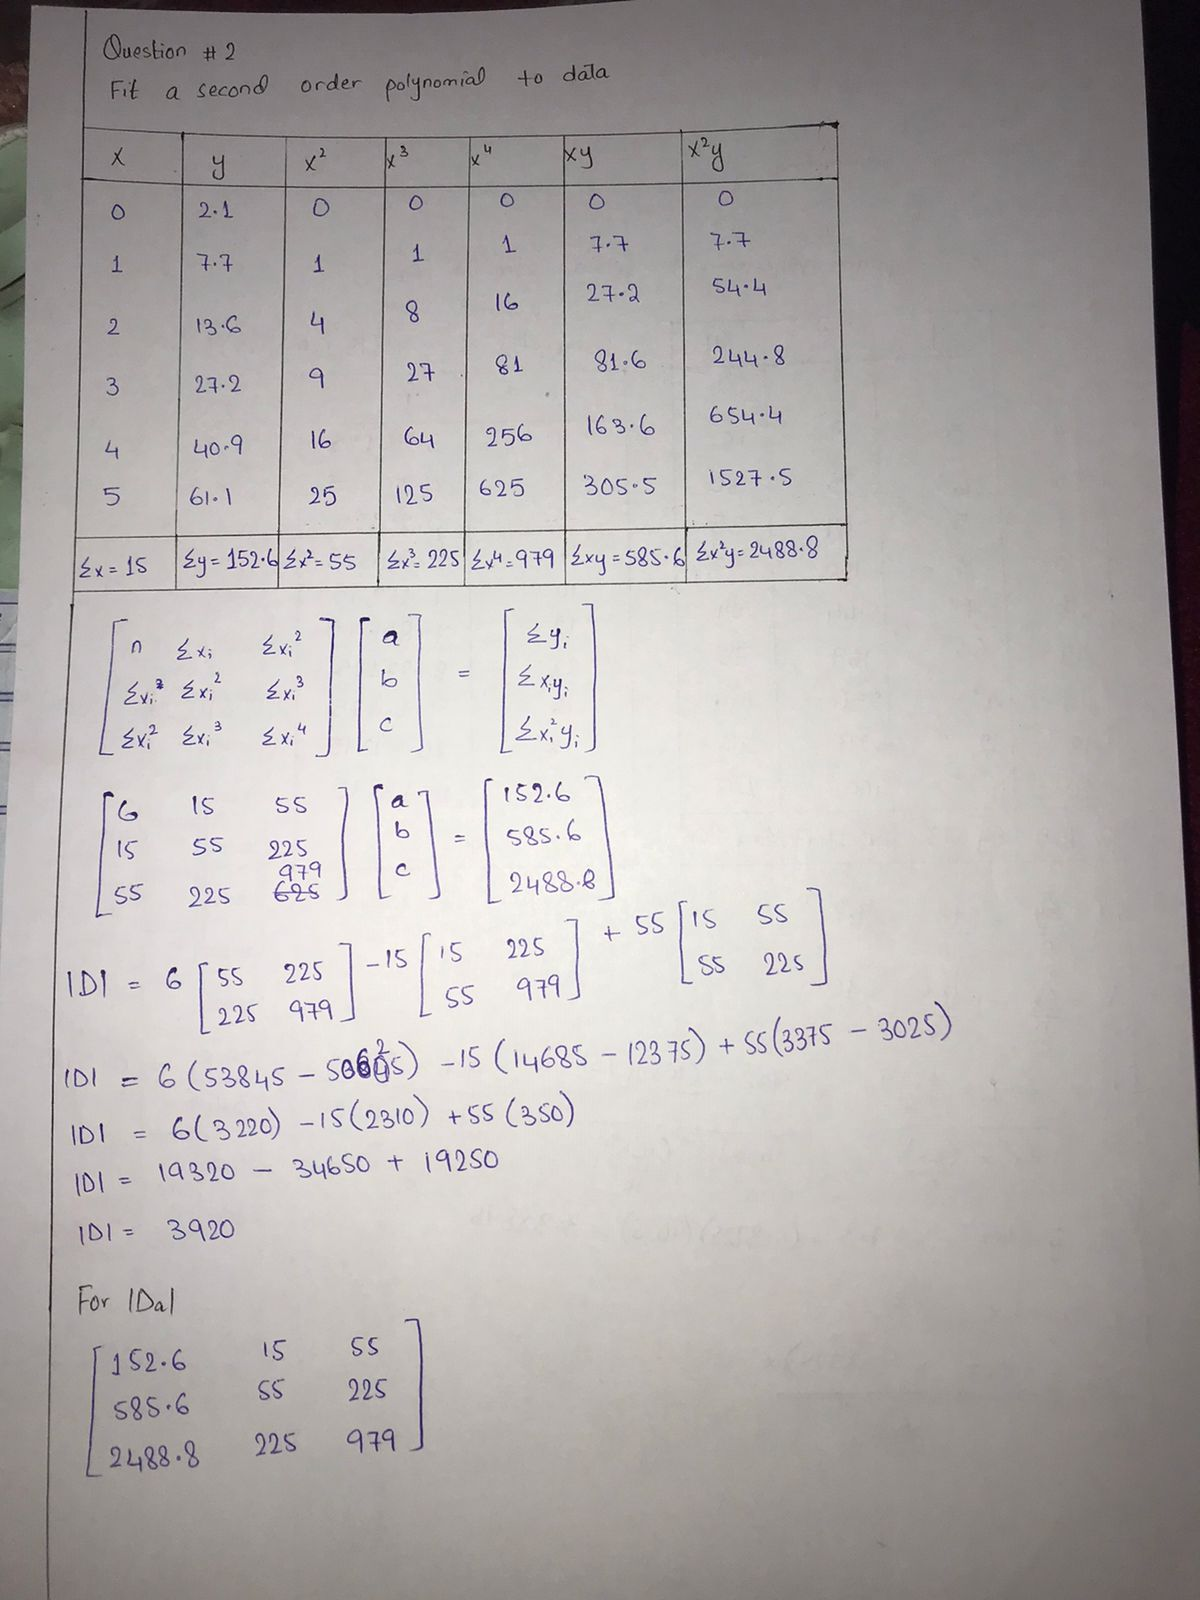 Question # 2
Fit a second order polynomial to data
x y x² x³ x⁴ xy x²y
0 2.1 0 0 0 0 0
1 7.7 1 1 1 7.7 7.7
2 13.6 4 8 16 27.2 54.4
3 27.2 9 27 81 81.6 244.8
4 40.9 16 64 256 163.6 654.4
5 61.1 25 125 625 305.5 1527.5
Σx = 15 Σy = 152.6 Σx² = 55 Σx³ = 225 Σx⁴ = 979 Σxy = 585.6 Σx²y = 2488.8
[ n Σxᵢ Σxᵢ² ] [ a ] [ Σyᵢ ]
[ Σxᵢ Σxᵢ² Σxᵢ³ ] [ b ] = [ Σxᵢyᵢ ]
[ Σxᵢ² Σxᵢ³ Σxᵢ⁴ ] [ c ] [ Σxᵢ²yᵢ ]
[ 6 15 55 ] [ a ] [ 152.6 ]
[ 15 55 225 ] [ b ] = [ 585.6 ]
979
[ 55 225 625 ] [ c ] [ 2488.8 ]
|D| = 6 [ 55 225 ] - 15 [ 15 225 ] + 55 [ 15 55 ]
[ 225 979 ] [ 55 979 ] [ 55 225 ]
|D| = 6 (53845 - 50625) - 15 (14685 - 12375) + 55 (3375 - 3025)
|D| = 6(3220) - 15(2310) + 55 (350)
|D| = 19320 - 34650 + 19250
|D| = 3920
For |Da|
[ 152.6 15 55 ]
[ 585.6 55 225 ]
[ 2488.8 225 979 ]